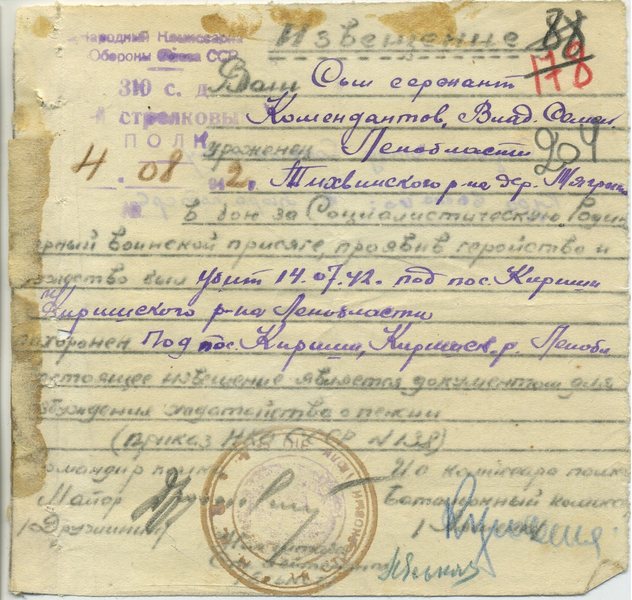 Народный Комиссариат Извещение
Обороны Союза ССР 178
310 с. д. Ваш Сын сержант
й стрелковый Комендантов, Влад. Семен.
ПОЛК уроженец Ленобласти 204
4. 08 1942г. Тихвинского р-на дер.
№ в бою за Социалистическую Родину
верный воинской присяге, проявив геройство и
мужество был убит 14.07.42. под пос. Кириши
Киришского р-на Ленобласти
похоронен Под пос. Кириши, Киришск. р. Ленобл
Настоящее извещение является документом для
возбуждения ходатайства о пенсии
(приказ НКО СССР N138)
Командир полка И о комиссара полка
Майор Батальонный комиссар
/Дружинин/